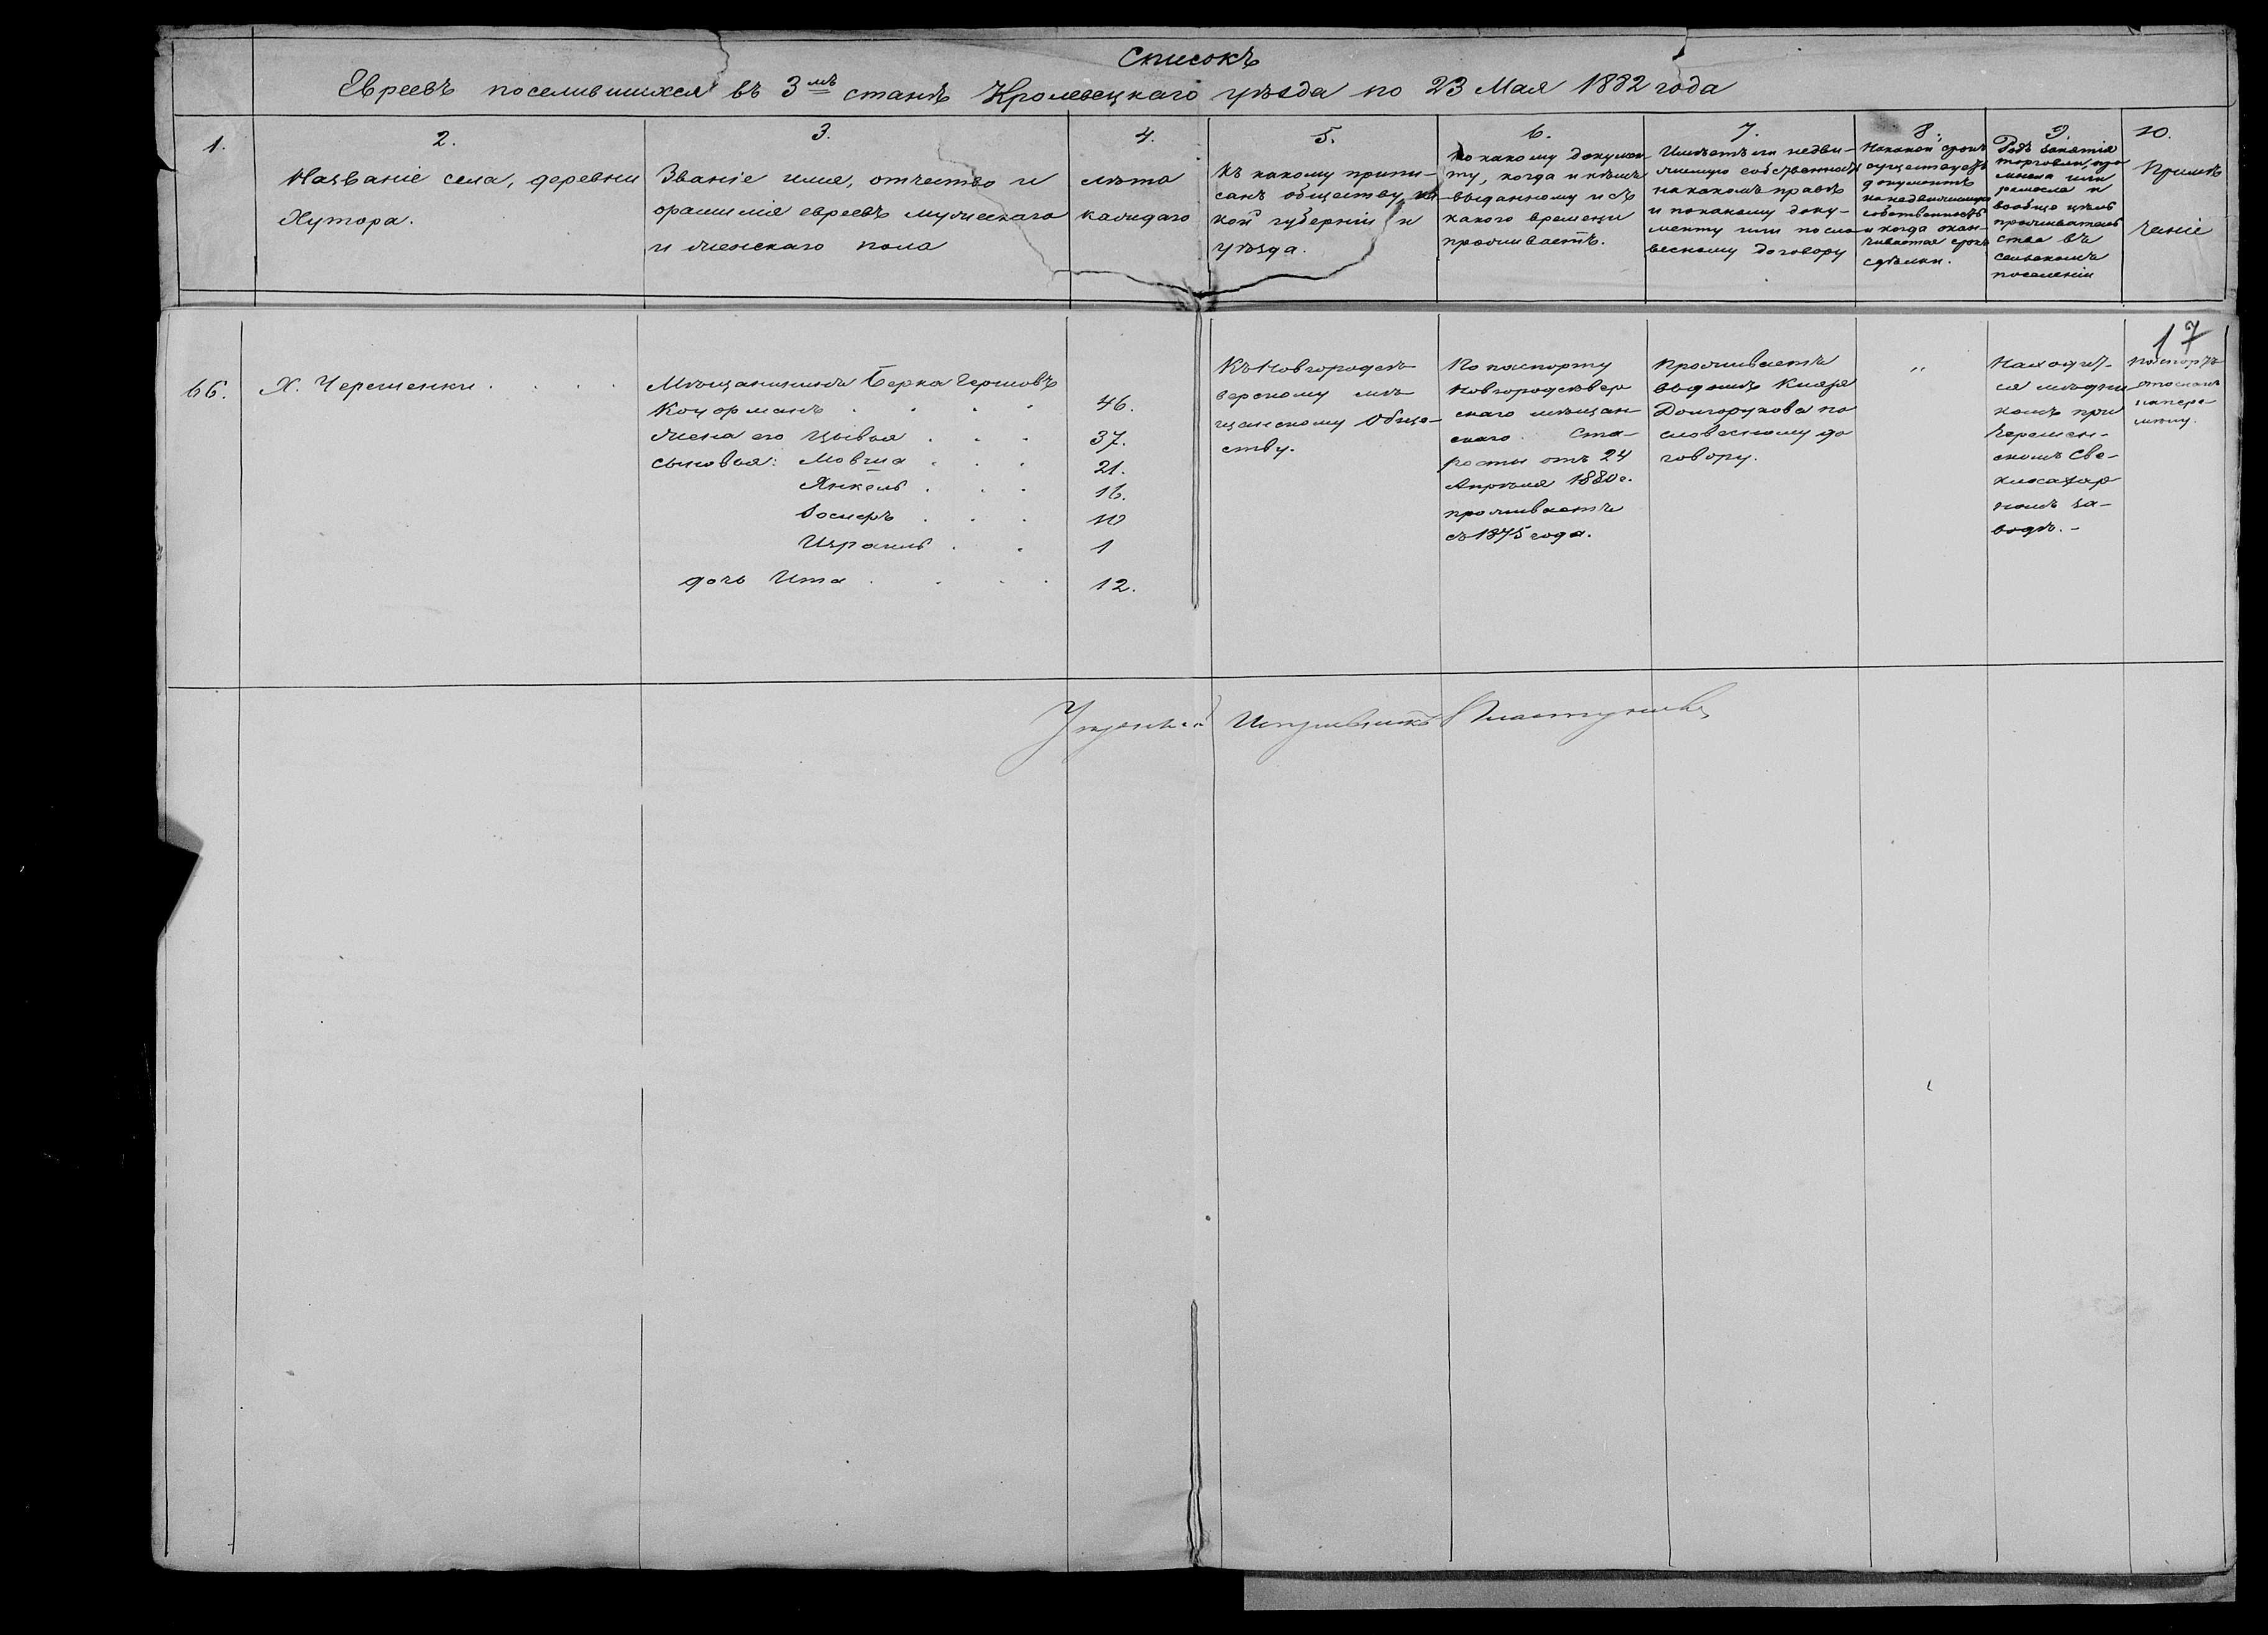 Списокъ
Евреевъ поселившихся въ 3мъ станѣ Кролевецкаго уѣзда по 23 Мая 1882 года
1.
2.
Названіе села, деревни
Хутора.
3.
Званіе имя, отчество и
фамилія евреевъ мужескаго
и женскаго пола
4.
лѣта
каждаго
5.
Къ какому припи-
санъ обществу, ка
кой губерніи и
уѣзда.
6.
По какому докумен-
ту, когда и кѣмъ
выданному и съ
какого времени
проживаетъ.
7.
Имѣетъ ли недви-
жимую собственность
на какомъ правѣ
и по какому доку-
менту или по сло-
весному договору
8.
На какой срокъ
существуетъ
документъ
на недвижимую
собственность
и когда окан-
чивается срокъ
сдѣлки.
9.
Родъ занятія
торговли, про
мысла или
ремесла и
вообще цѣль
проживатель
ства въ
сельскомъ
поселеніи
10.
Примѣ
чаніе
17
66.
Х. Черешенки . . . .
Мѣщанинъ Берка Гершовъ
Коцорманъ . . . . 46.
жена его Цывья . . . 37.
сыновья: Мовша . . . 21.
Янкель . . . 16.
Іосифъ . . . 10
Израиль . . 1
дочь Ита . . . . 12.
Къ Новгородсѣ-
верскому мѣ-
щанскому Обще-
ству.
По паспорту
Новгородсѣвер
скаго мѣщан-
скаго Ста-
росты отъ 24
Апрѣля 1880 г.
проживаетъ
съ 1875 года.
Проживаетъ
въ домѣ Князя
Долгорукова по
словесному до
говору.
"
Находит-
ся мѣдни
комъ при
Черешен-
скомъ Све-
клосахар
номъ за-
водѣ.-
Паспортъ
отосланъ
на пере-
мѣну.
Уѣздный Исправникъ